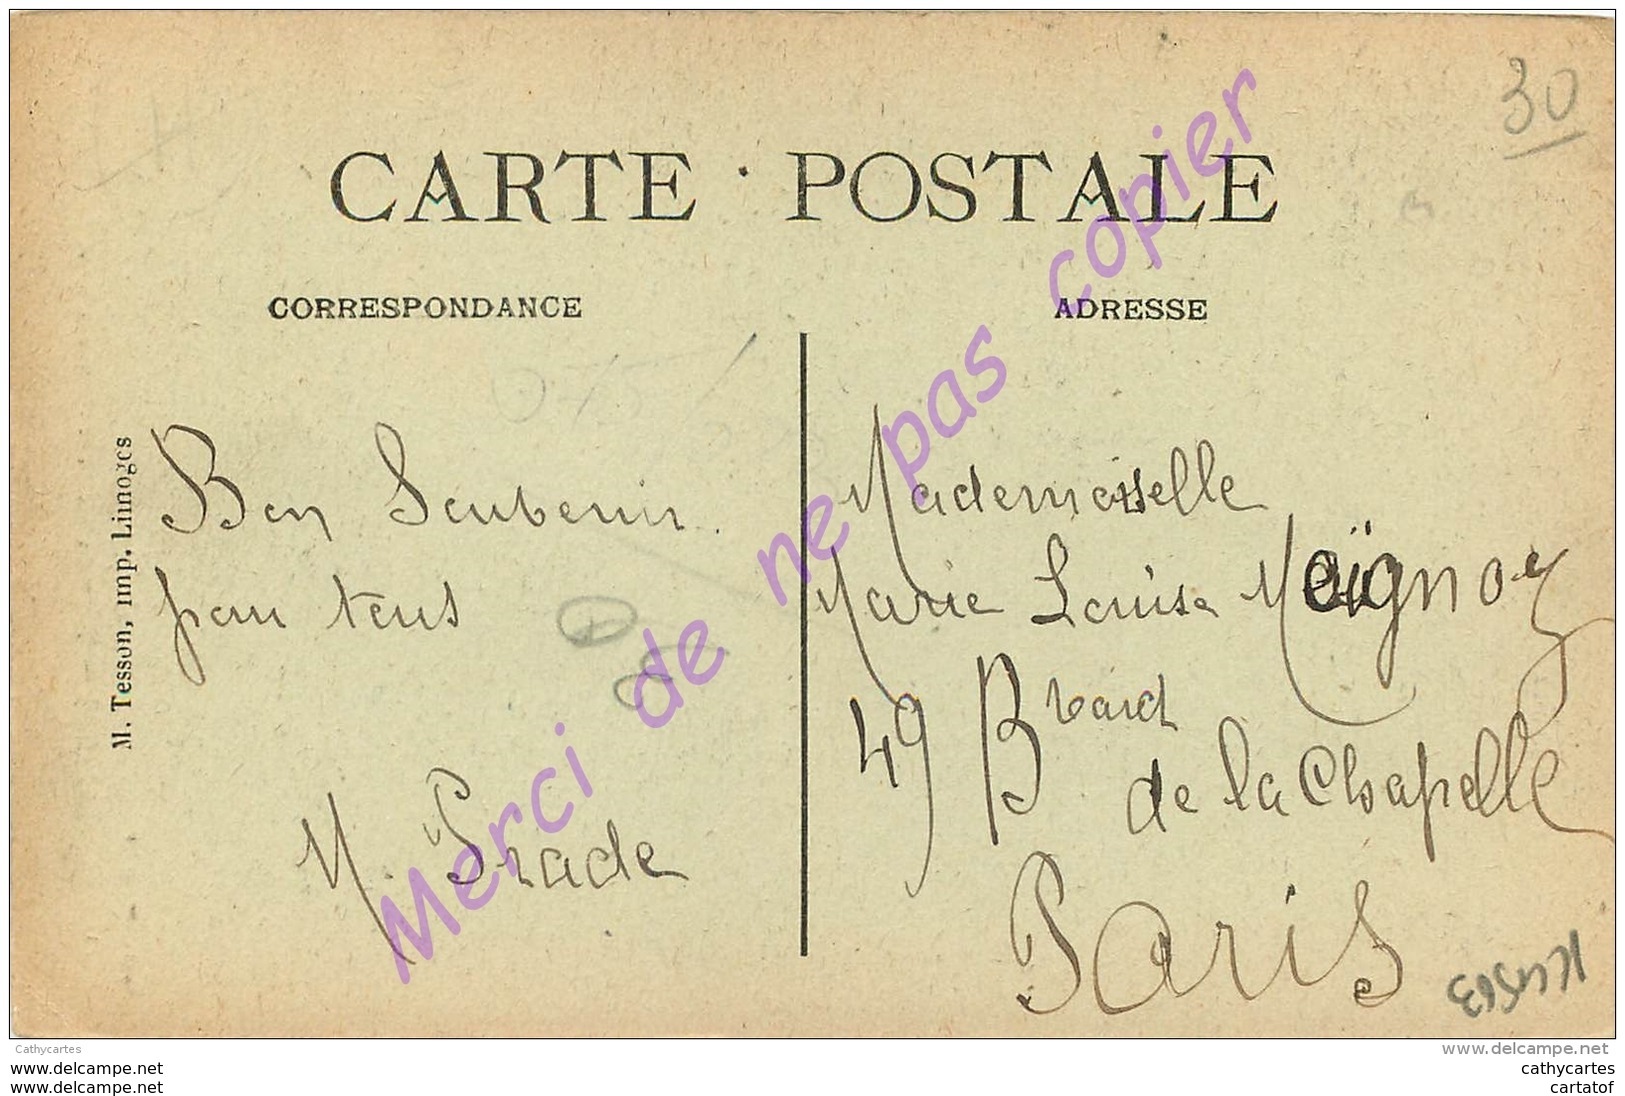 30
CARTE POSTALE
CORRESPONDANCE
ADRESSE
Bon Souvenir
pour tous
M. Prade
M. Tesson, imp. Limoges
Mademoiselle
Marie Louise Maïgnoy
49 Bvard
de la Chapelle
Paris
Merci de ne pas copier
Cathycartes
www.delcampe.net
www.delcampe.net
www.delcampe.net
cathycartes
cartatof